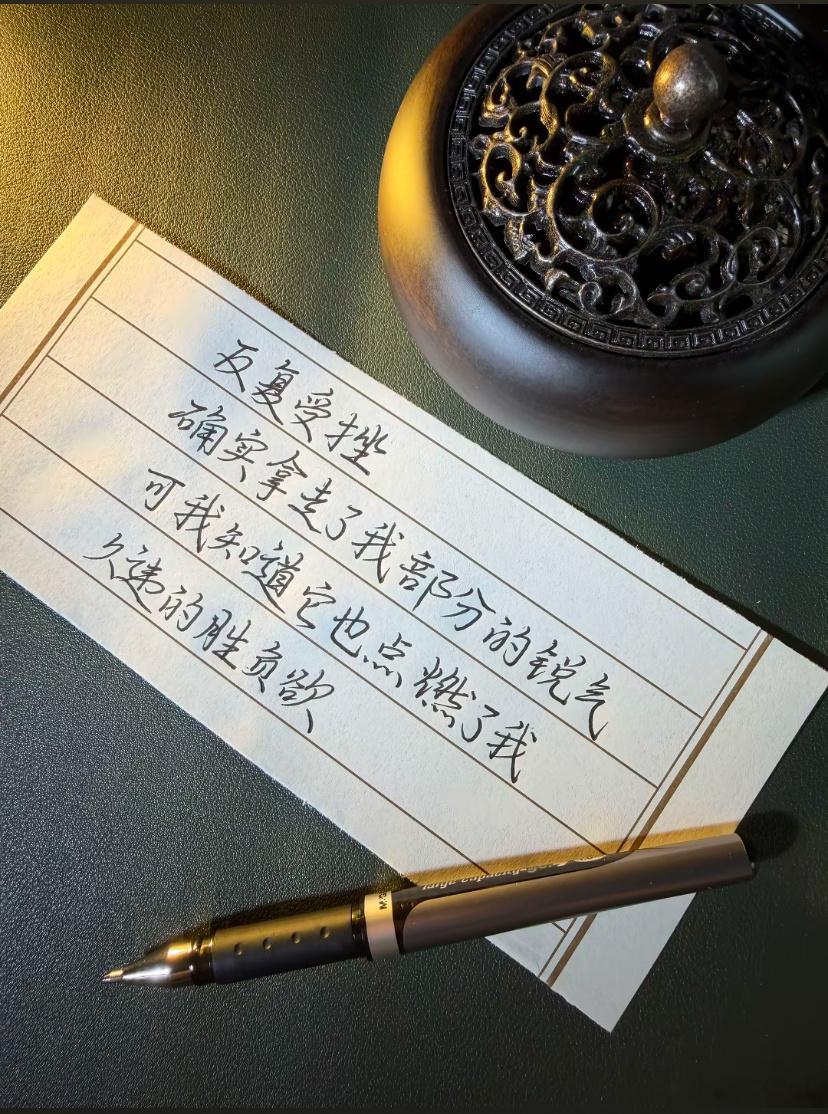 反复受挫
确实拿走了我部分的锐气
可我知道它也点燃了我
久违的胜负欲
large capacity